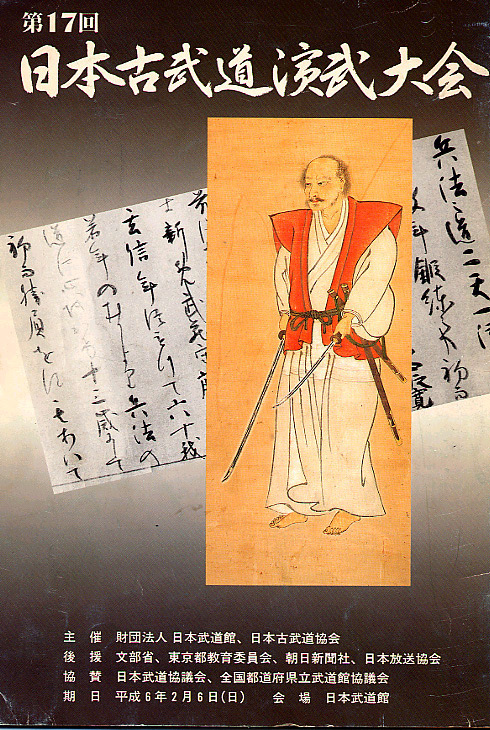 第17回
日本古武道演武大会
兵法之道二天一
年鍛練之事初而
寛
新免武蔵守藤
玄信年つもりて六十我
若年のむかしより兵法の
道に心をかけ十三歳にして
初而勝負をす
主催 財団法人 日本武道館、日本古武道協会
後援 文部省、東京都教育委員会、朝日新聞社、日本放送協会
協賛 日本武道協議会、全国都道府県立武道館協議会
期日 平成6年2月6日(日) 会場 日本武道館